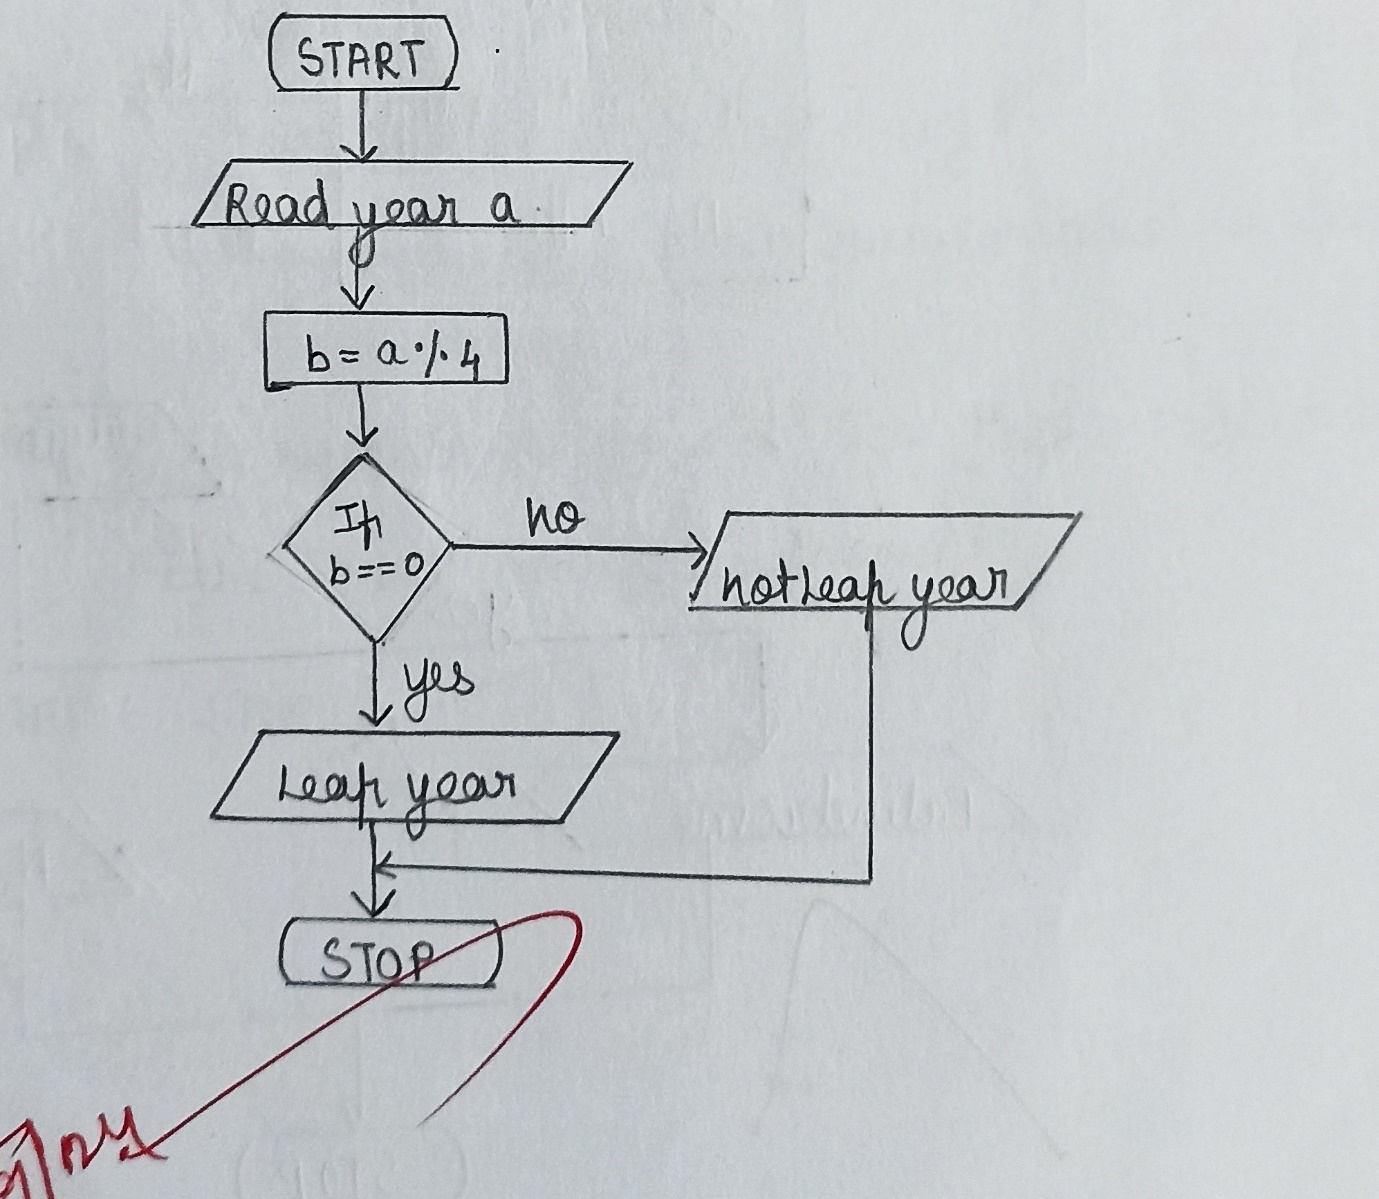 START
Read year a.
b = a % 4
If
b==0
no
not Leap year
yes
Leap year
STOP